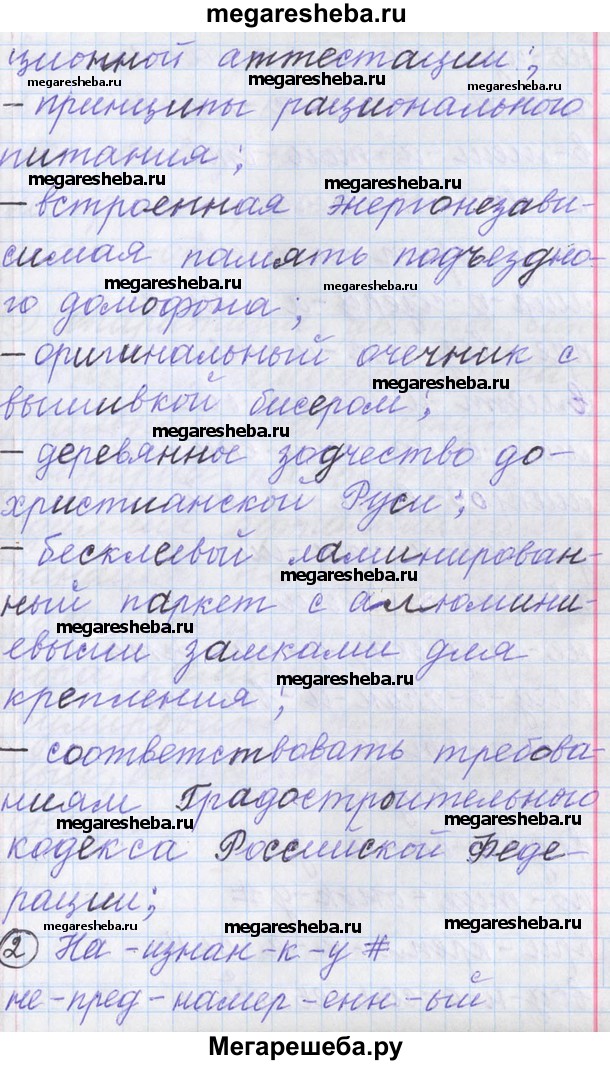 megaresheba.ru
ционной аттестации;
megaresheba.ru megaresheba.ru megaresheba.ru
– принципы рационального
питания;
megaresheba.ru megaresheba.ru
– встроенная энергонезави-
симая память подъездно-
megaresheba.ru megaresheba.ru
го домофона;
– оригинальный очечник с
megaresheba.ru
вышивкой бисером;
megaresheba.ru
– деревянное зодчество до-
христианской Руси;
– бесклеевой ламинирован-
megaresheba.ru
ный паркет с алюмини-
megaresheba.ru
евыми замками для
megaresheba.ru
крепления;
– соответствовать требова-
ниям Градостроительного
megaresheba.ru megaresheba.ru
кодекса Российской Феде-
рации;
megaresheba.ru megaresheba.ru
2 На-изнан-к-у#
не-пред-намер-енн-ый
Мегарешеба.ру